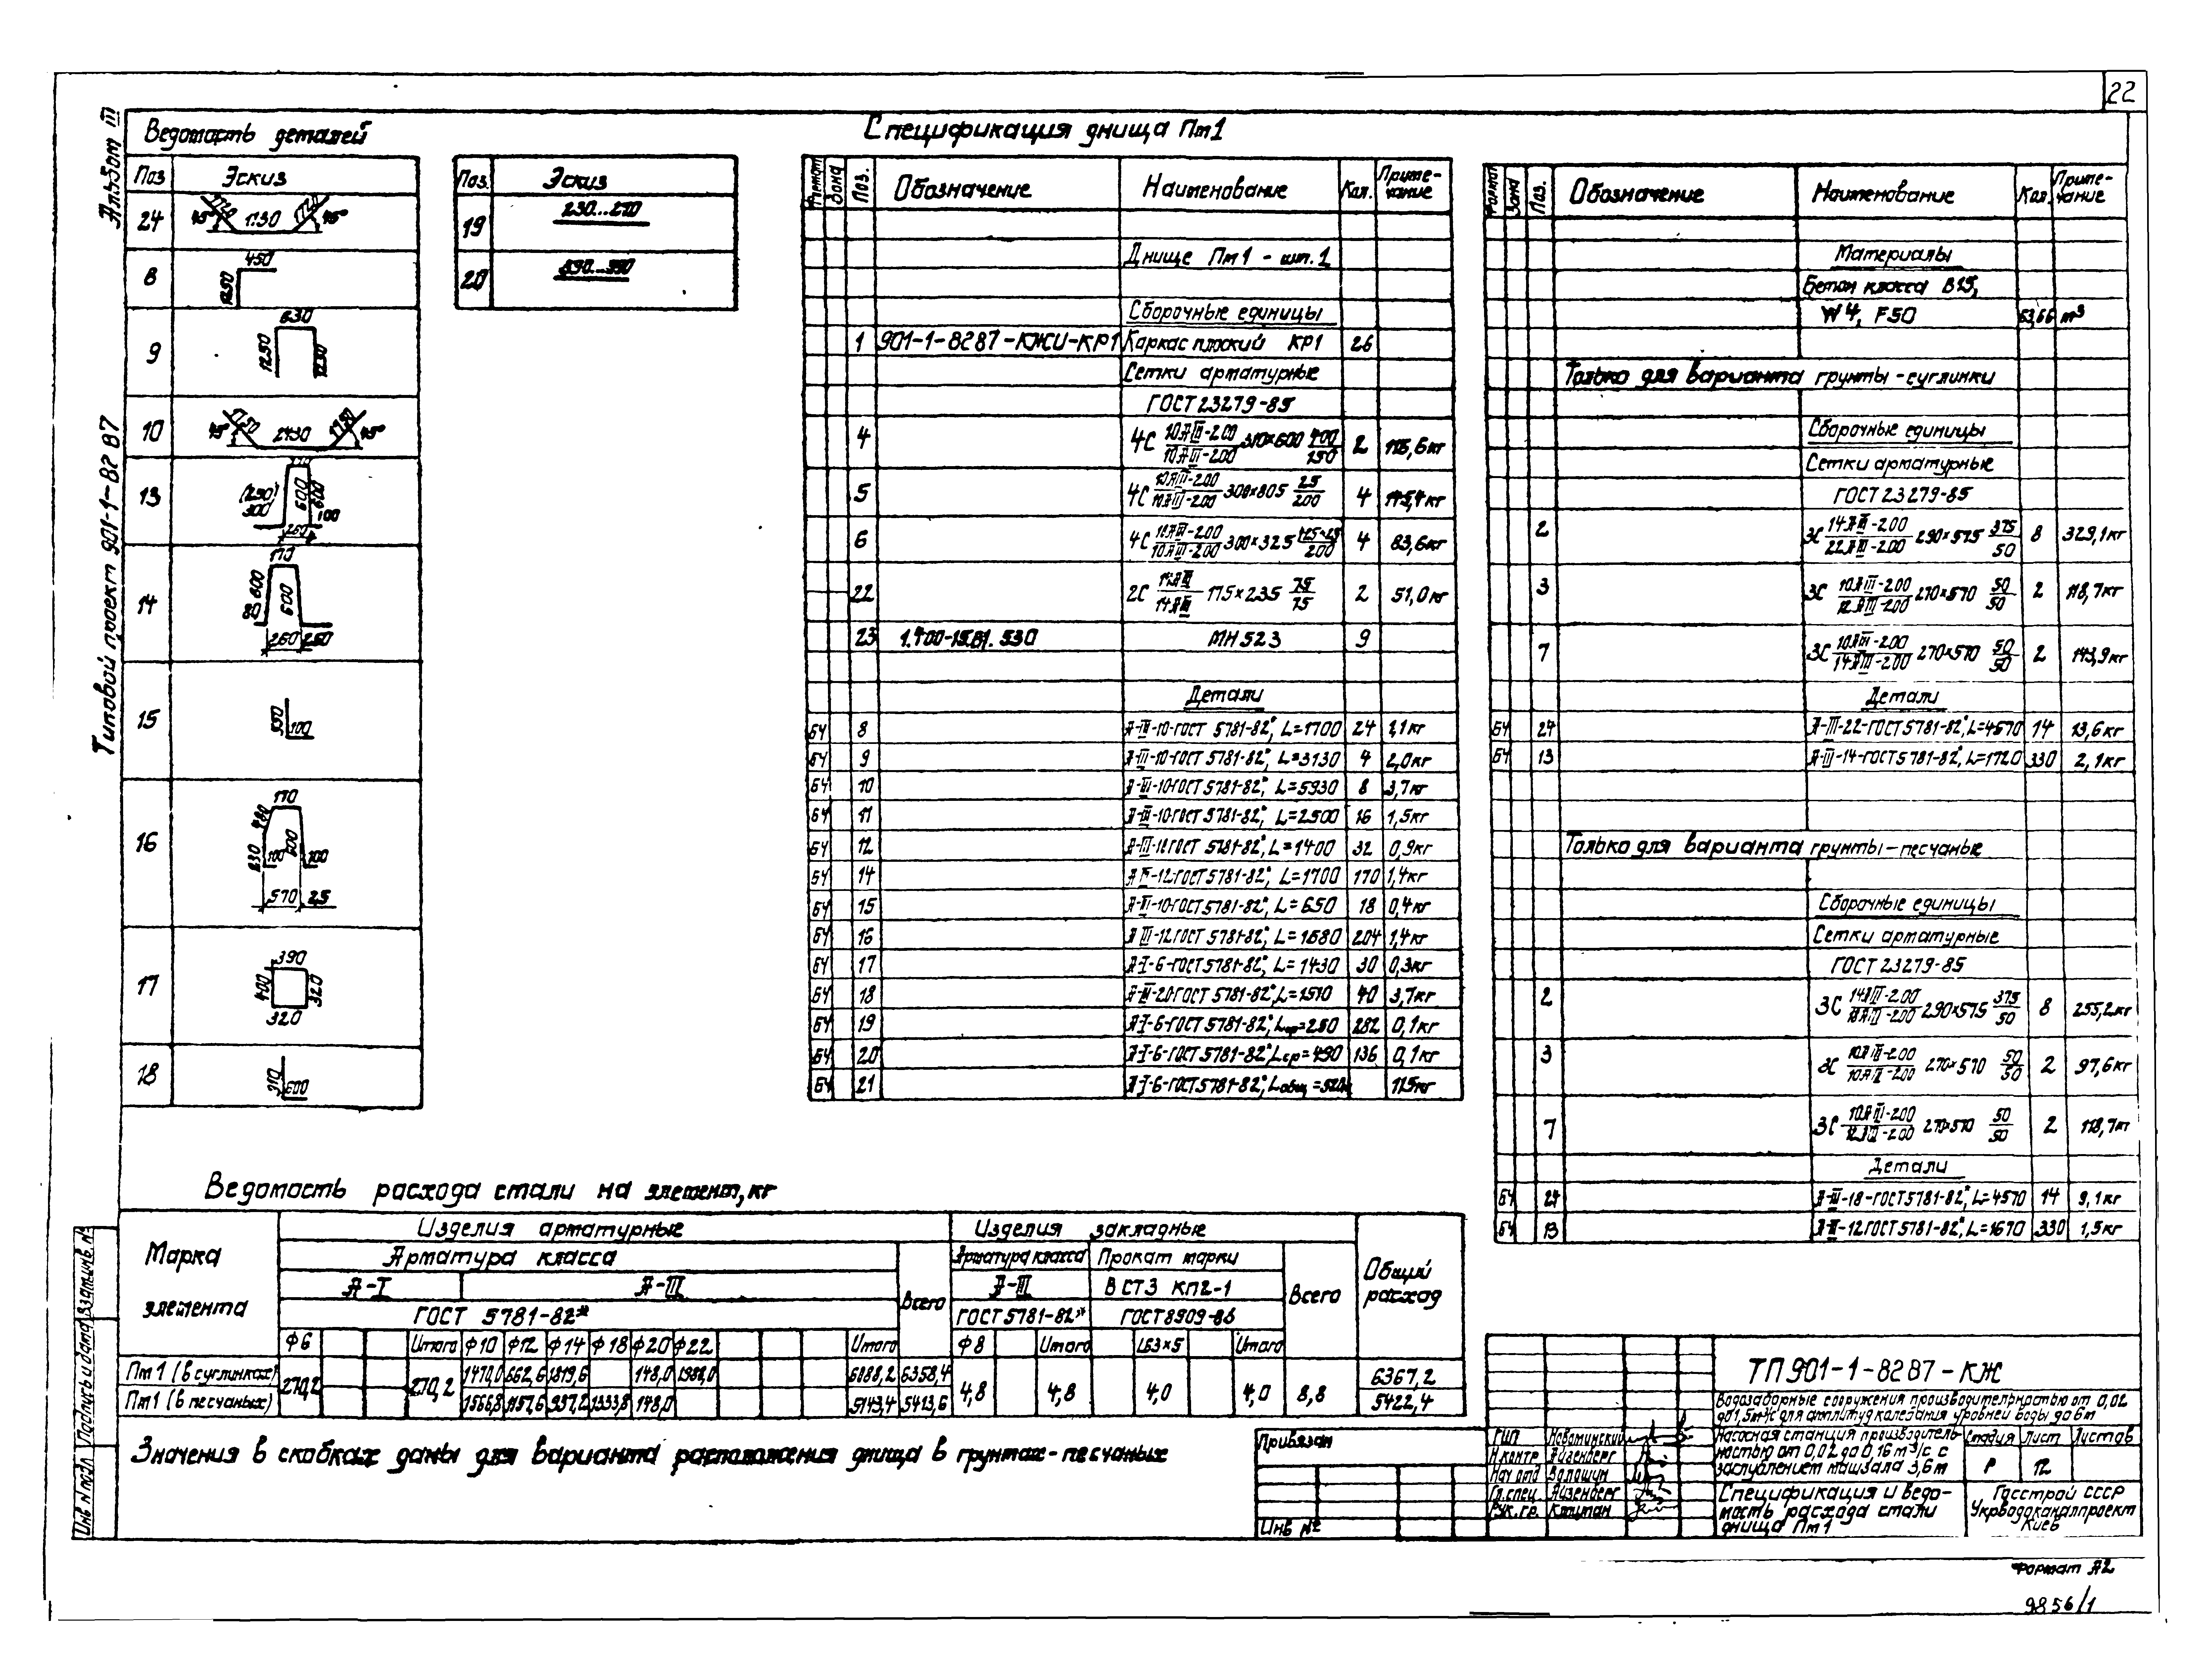 22
Альбом III
Типовой проект 901-1-82 87
Ведомость деталей
Поз Эскиз
24 45° 1720 1130 1720 45°
8 450 1250
9 630 1250 1250
10 45° 1750 2430 1750 45°
13 (250) 300 600 600 100 260
14 170 600 80 600 260 250
15 550 100
16 170 230 100 600 100 570 25
17 390 400 320 320
18 910 600
Поз. Эскиз
19 230...270
20 890...990
Спецификация днища Пм1
Формат Зона Поз. Обозначение Наименование Кол. Примечание
Днище Пм1 - шт.1
Сборочные единицы
1 901-1-8287-КЖИ-КР1 Каркас плоский КР1 26
Сетки арматурные
ГОСТ 23279-85
4 4С 10АIII-200/10АIII-200 310×600 400/150 2 115,6кг
5 4С 10АIII-200/10АIII-200 300×805 25/200 4 145,4кг
6 4С 10АIII-200/10АIII-200 300×325 125+25/200 4 83,6кг
22 2С 14АIII/14АIII 175×235 75/75 2 51,0кг
23 1.400-15.В1. 530 МН 523 9
Детали
БЧ 8 А-III-10-ГОСТ 5781-82*, L=1700 24 1,1кг
БЧ 9 А-III-10-ГОСТ 5781-82*, L=3130 4 2,0кг
БЧ 10 А-III-10-ГОСТ 5781-82*, L=5930 8 3,7кг
БЧ 11 А-III-10-ГОСТ 5781-82*, L=2500 16 1,5кг
БЧ 12 А-III-10 ГОСТ 5781-82*, L=1400 32 0,9кг
БЧ 14 А-III-12-ГОСТ 5781-82*, L=1700 170 1,4кг
БЧ 15 А-III-10-ГОСТ 5781-82*, L=650 18 0,4кг
БЧ 16 А III-12 ГОСТ 5781-82*, L=1680 204 1,4кг
БЧ 17 А-I-6-ГОСТ 5781-82*, L=1430 30 0,3кг
БЧ 18 А-III-20-ГОСТ 5781-82*, L=1510 40 3,7кг
БЧ 19 А-I-6-ГОСТ 5781-82*, Lср=250 282 0,1кг
БЧ 20 А-I-6-ГОСТ 5781-82*, Lср=490 136 0,1кг
БЧ 21 А-I-6-ГОСТ 5781-82*, Lобщ=520м 115кг
Формат Зона Поз. Обозначение Наименование Кол. Примечание
Материалы
Бетон класса В15,
W4, F50 53,66 м³
Только для варианта грунты-суглинки
Сборочные единицы
Сетки арматурные
ГОСТ 23279-85
2 3С 14АIII-200/22АIII-200 290×575 375/50 8 329,1кг
3 3С 10АIII-200/12АIII-200 270×570 50/50 2 118,7кг
7 3С 10АIII-200/14АIII-200 270×570 50/50 2 143,9кг
Детали
БЧ 24 А-III-22-ГОСТ 5781-82*, L=4570 14 13,6кг
БЧ 13 А-III-14-ГОСТ 5781-82*, L=1720 330 2,1кг
Только для варианта грунты-песчаные
Сборочные единицы
Сетки арматурные
ГОСТ 23279-85
2 3С 14АIII-200/18АIII-200 290×575 375/50 8 255,2кг
3 3С 10АIII-200/10АIII-200 270×570 50/50 2 97,6кг
7 3С 10АIII-200/12АIII-200 270×570 50/50 2 118,7кг
Детали
БЧ 24 А-III-18-ГОСТ 5781-82*, L=4570 14 9,1кг
БЧ 13 А-III-12 ГОСТ 5781-82*, L=1670 330 1,5кг
Ведомость расхода стали на элемент, кг
Марка элемента Изделия арматурные Изделия закладные Общий расход
Арматура класса Всего Арматура класса Прокат марки Всего
А-I А-III А-III В СТ3 КП2-1
ГОСТ 5781-82* ГОСТ 5781-82* ГОСТ 8509-86
Ф6 Итого Ф10 Ф12 Ф14 Ф18 Ф20 Ф22 Итого Ф8 Итого L63×5 Итого
Пм1 (в суглинках) 270,2 270,2 1470,0 662,6 1819,6 148,0 1988,0 6088,2 6358,4 4,8 4,8 4,0 4,0 8,8 6367,2
Пм1 (в песчаных) 1566,8 1157,6 937,2 1333,8 148,0 5143,4 5413,6 5422,4
Значения в скобках даны для варианта расположения днища в грунтах-песчаных
Инв № подл Подпись и дата Взам. инв. №
Привязан
Инв №
ГИП Новоминский
Н.контр. Айзенберг
Нач отд Волошун
Гл.спец. Айзенберг
Рук. гр. Клушман
ТП 901-1-8287-КЖ
Водозаборные сооружения производительностью от 0,02
до 1,5 м³/с для амплитуд колебания уровней воды до 6м
Насосная станция производитель-
ностью от 0,02 до 0,16 м³/с с
заглублением машзала 3,6м
Стадия Лист Листов
Р 12
Спецификация и ведо-
мость расхода стали
днища Пм1
Госстрой СССР
Укрводоканалпроект
Киев
Формат А2
9856/1